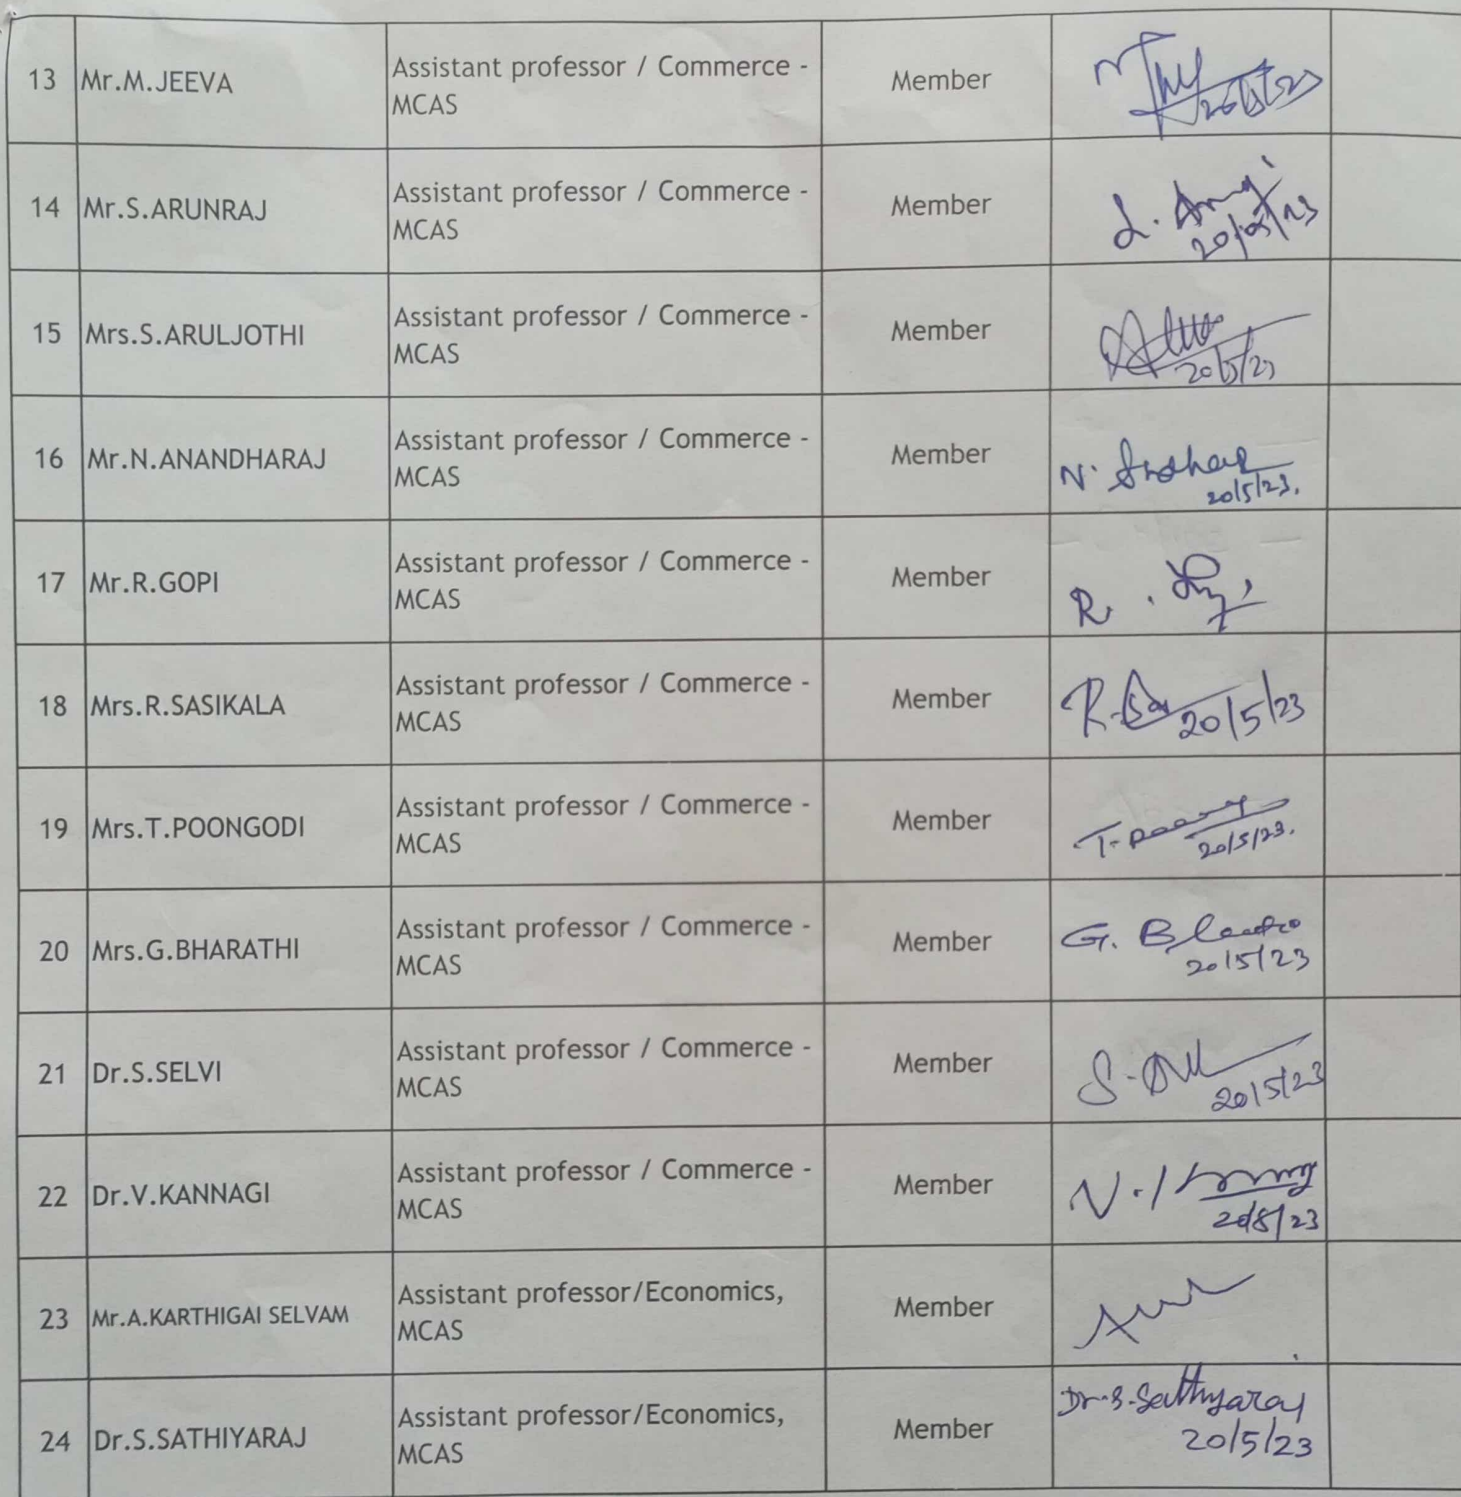 13 Mr.M.JEEVA Assistant professor / Commerce - Member
MCAS
14 Mr.S.ARUNRAJ Assistant professor / Commerce - Member
MCAS
20/5/23
15 Mrs.S.ARULJOTHI Assistant professor / Commerce - Member
MCAS
20/5/23
16 Mr.N.ANANDHARAJ Assistant professor / Commerce - Member
MCAS N.
20/5/23.
17 Mr.R.GOPI Assistant professor / Commerce - Member
MCAS R.
18 Mrs.R.SASIKALA Assistant professor / Commerce - Member
MCAS R. 20/5/23
19 Mrs.T.POONGODI Assistant professor / Commerce - Member
MCAS T.
20/5/23.
20 Mrs.G.BHARATHI Assistant professor / Commerce - Member G.
MCAS 20/5/23
21 Dr.S.SELVI Assistant professor / Commerce - Member
MCAS S.
20/5/23
22 Dr.V.KANNAGI Assistant professor / Commerce - Member
MCAS V.
20/5/23
23 Mr.A.KARTHIGAI SELVAM Assistant professor/Economics, Member
MCAS
24 Dr.S.SATHIYARAJ Assistant professor/Economics, Member Dr.S.Sathyaraj
MCAS 20/5/23